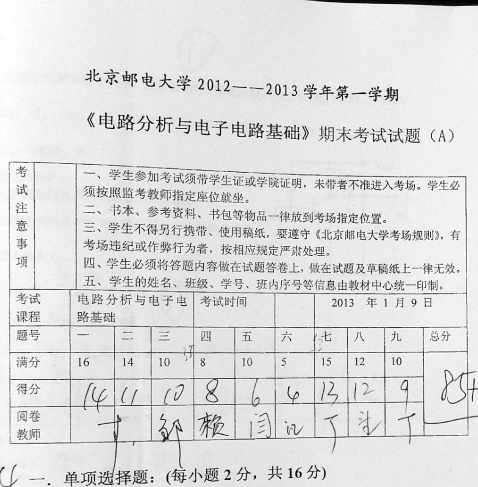 北京邮电大学 2012——2013 学年第一学期
《电路分析与电子电路基础》期末考试试题（A）
考试注意事项
一、学生参加考试须带学生证或学院证明，未带者不准进入考场。学生必
须按照监考教师指定座位就坐。
二、书本、参考资料、书包等物品一律放到考场指定位置。
三、学生不得另行携带、使用稿纸，要遵守《北京邮电大学考场规则》，有
考场违纪或作弊行为者，按相应规定严肃处理。
四、学生必须将答题内容做在试题答卷上，做在试题及草稿纸上一律无效。
五、学生的姓名、班级、学号、班内序号等信息由教材中心统一印制。
考试课程 电路分析与电子电路基础 考试时间 2013 年 1 月 9 日
题号 一 二 三 四 五 六 七 八 九 总分
满分 16 14 10 8 10 5 15 12 10
得分 14 11 10 8 6 4 13 12 9 85+
阅卷教师 邹 赖 闫
一．单项选择题：(每小题 2 分，共 16 分)